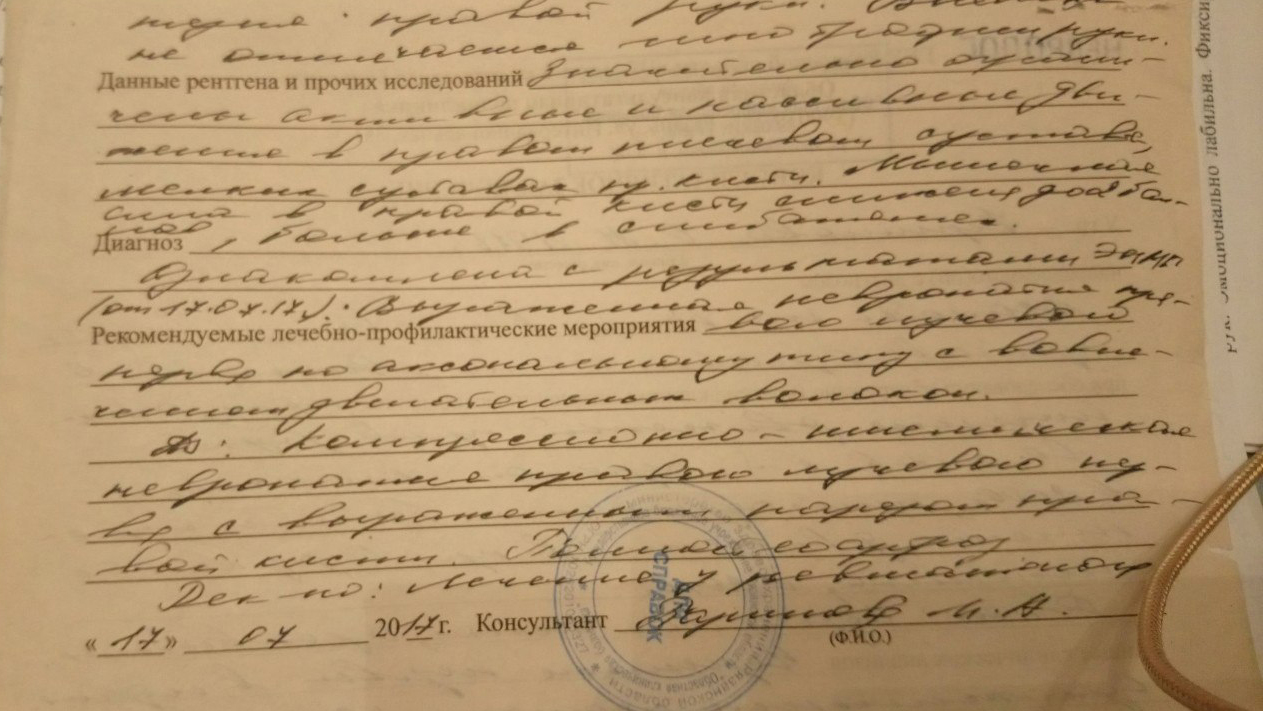 правой руки.
не отмечается
Данные рентгена и прочих исследований Значительно ограни-
чены активные и пассивные дви-
жения в правом плечевом суставе,
мелких суставах пр. кисти. Мышечная
сила в правой кисти снижена до 2 бал-
лов, больше в сгибателях.
Диагноз
Ознакомлена с результатами ЭНМГ
(от 17.07.17г.). Выраженная невропатия пра-
Рекомендуемые лечебно-профилактические мероприятия вого лучевого
нерва по аксональному типу с вовле-
чением двигательных волокон.
Ds: Компрессионно-ишемическая
невропатия правого лучевого не-
рва с выраженным парезом пра-
вой кисти.
Рек-но: Лечение у ревматолога
«17» 07 2017 г. Консультант
(Ф.И.О.)
ДЛЯ
СПРАВОК
Рязанской области
рук. Эмоционально лабильна. Фикси